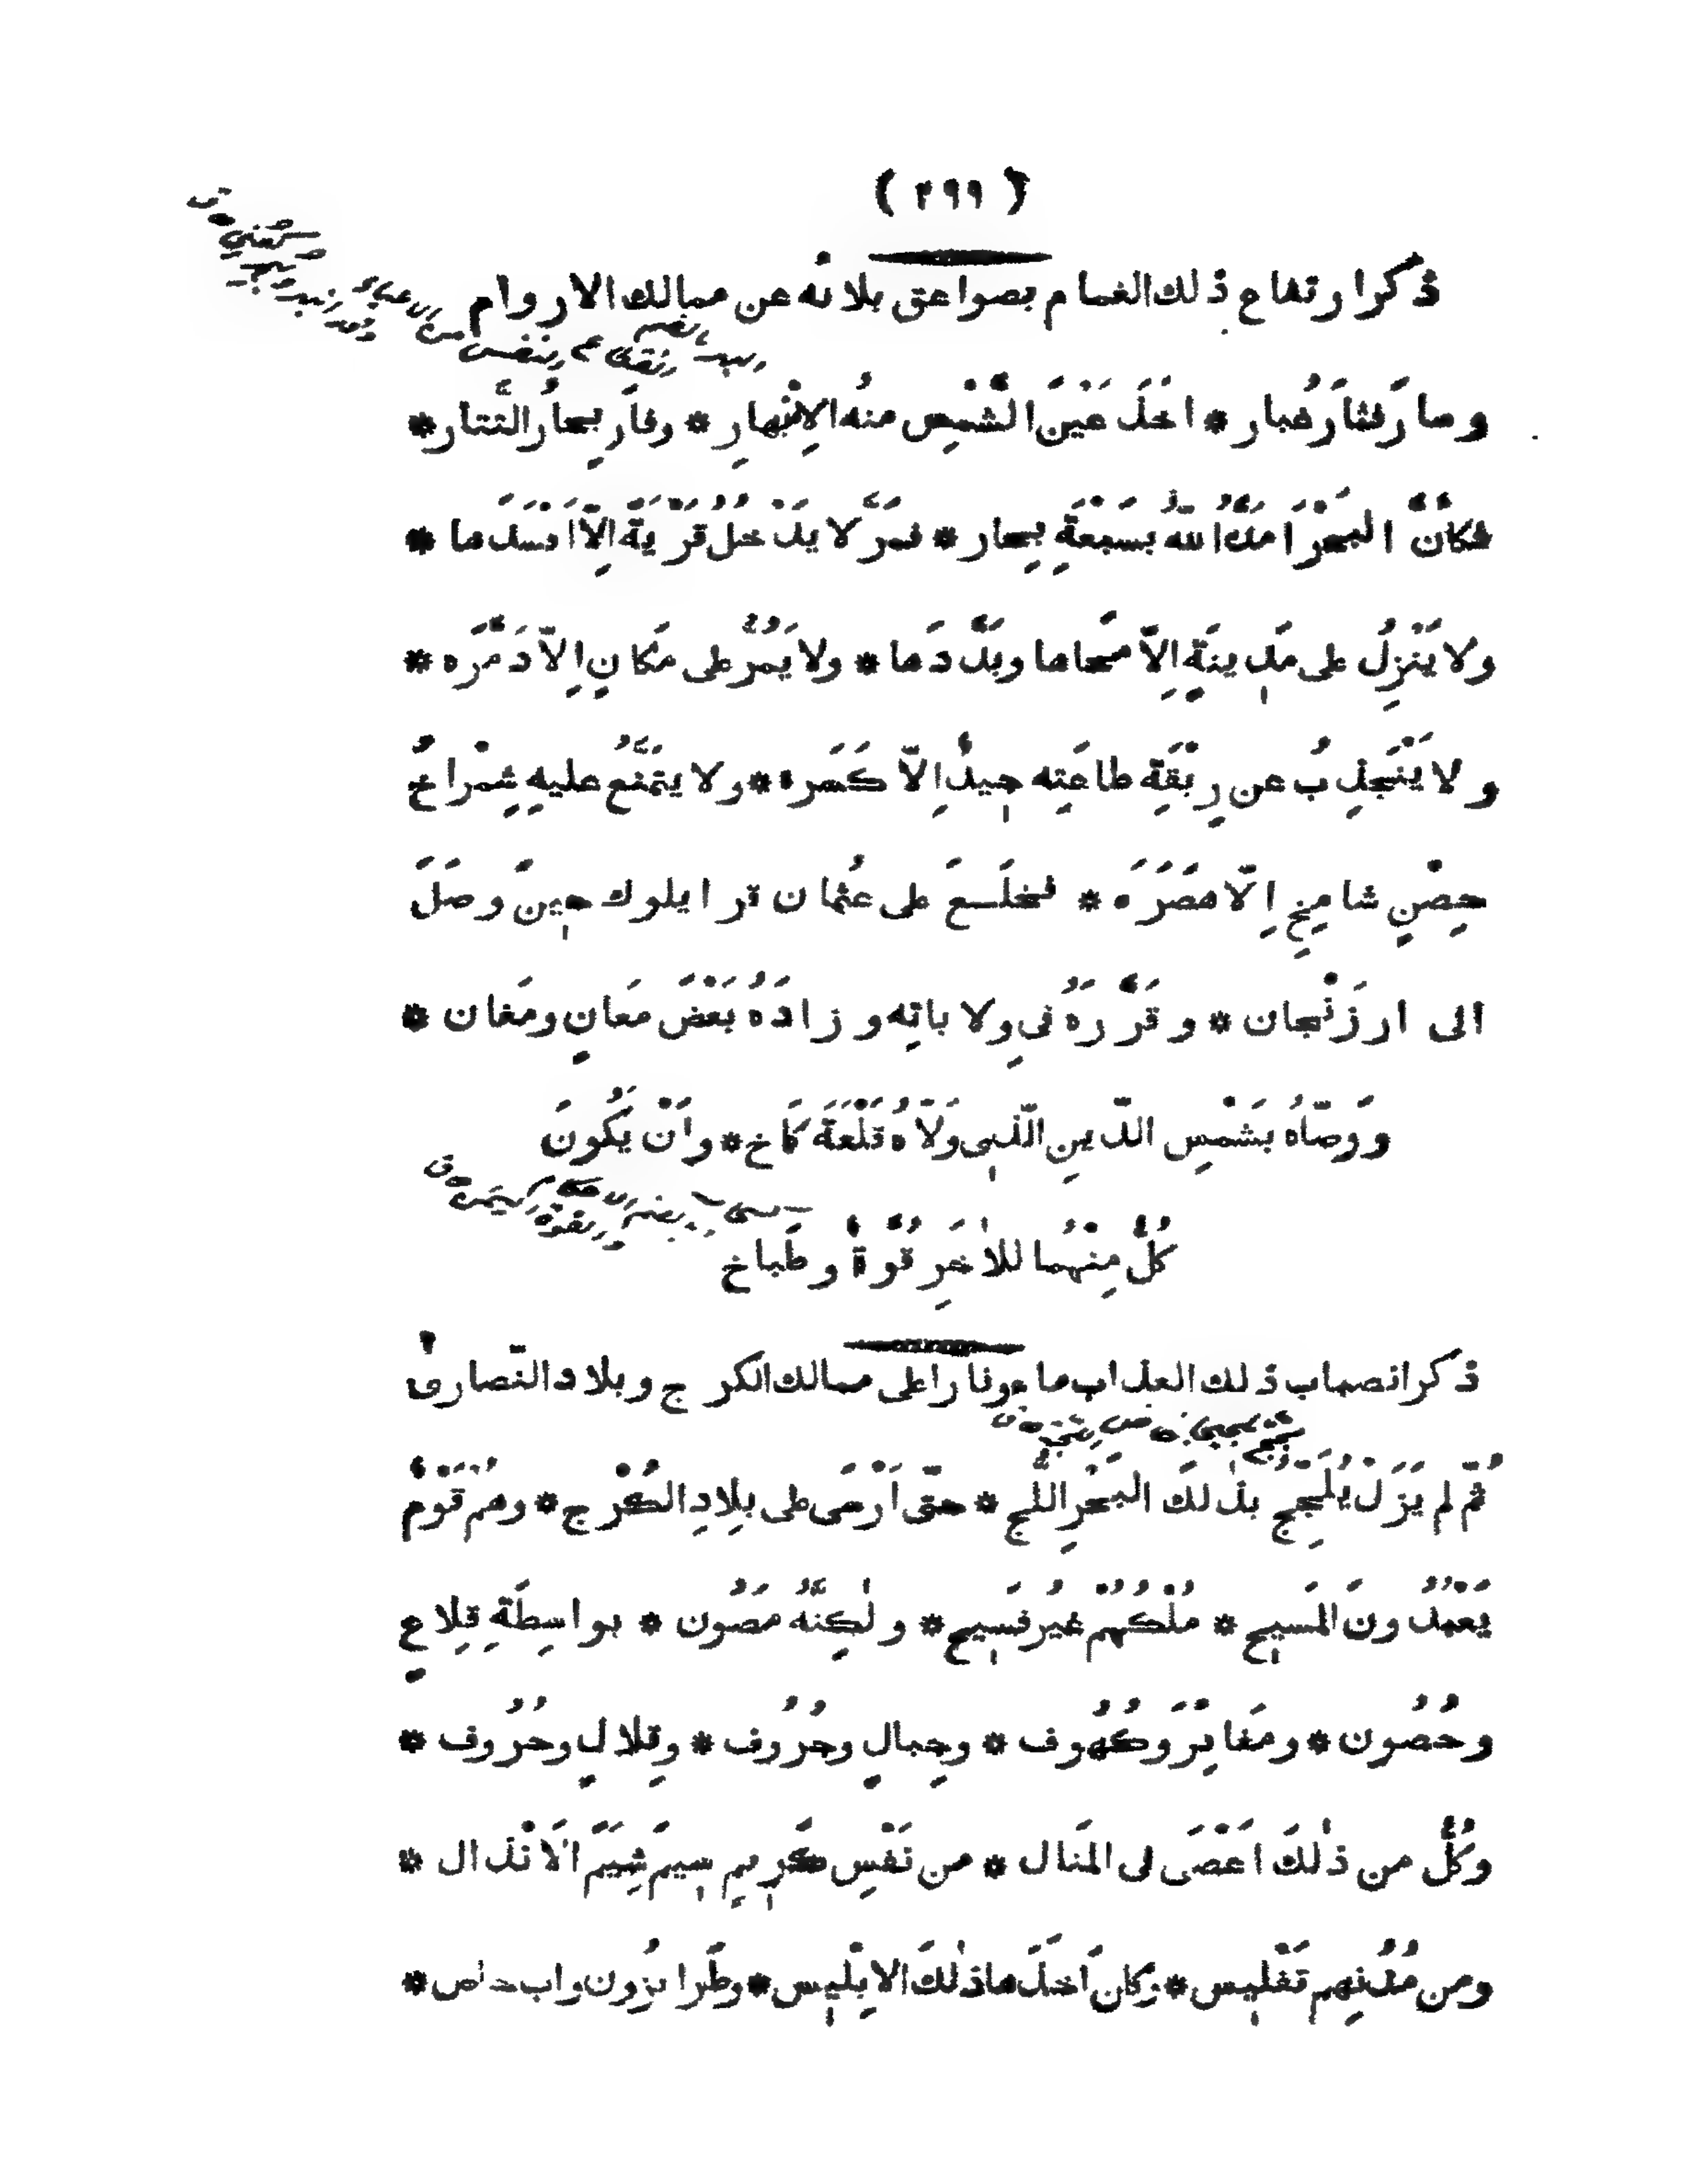 ( ٢٩٩ )
ذكر ارتفاع ذلك الغمام بصواعق بلائه عن ممالك الاروام
وصار فثار غبار * اخذ عين الشمس منه الانبهار * وفار بحار التتار *
فكأنّ البحر امدّه الله بسبعة بحار * فمرّ لا يدخل قرية الّا افسدها *
ولا ينزل على مدينة الّا محاها وبدّدها * ولا يمرّ على مكان الّا دمّره *
ولا ينجذب عن ربقة طاعته جيد الّا كسره * ولا يتمنّع عليه شمراخ
حصن شامخ الّا هصره * فخلع على عثمان قرايلوك حين وصل
الى ارزنجان * وقرّره في ولاياته وزاده بعض معان ومغان *
ووصّاه بشمس الدّين الّذي ولّاه قلعة كماخ * وأن يكون
كلّ منهما للآخر قوّة وطباخ
ذكر انصباب ذلك العذاب ماء ونارا على ممالك الكرج وبلاد النّصارى
ثمّ لم يزل يلجّج بذلك البحر اللّجّ * حتّى ارسى على بلاد الكرج * وهم قوم
يعبدون المسيح * ملكهم غير فسيح * ولكنّه مصون * بواسطة قلاع
وحصون * ومغاير وكهوف * وجبال وجروف * وقلال وحروف *
وكلّ من ذلك اعصى لى المنال * من نفس كريم سيم شيم الانذال *
ومن مدنهم تفليس * وكان اخذها ذلك الابليس * وطرابزون واب خاص *